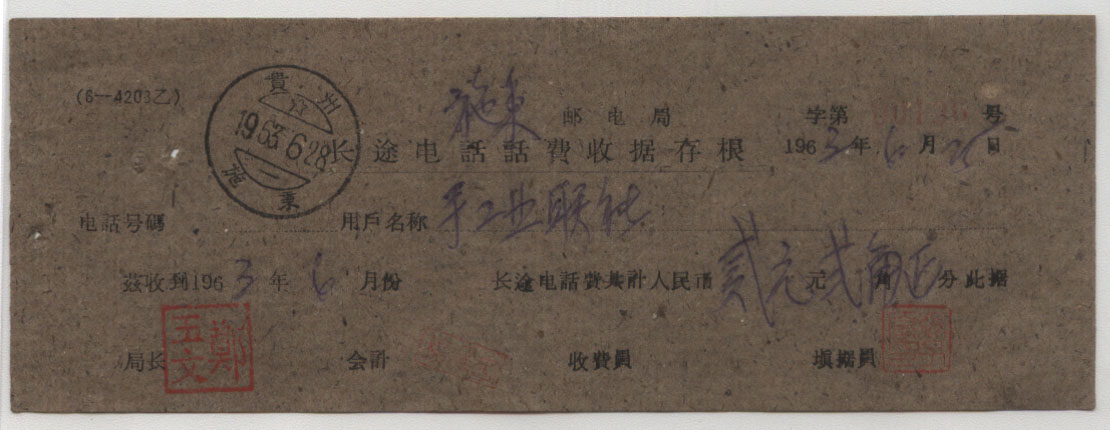 (6—4203乙)
貴州
1963.6.28
東
施東 邮电局 学第 号
长途电話話費收据存根 1963年6月28日
电話号碼 用戶名称 手工业联社
茲收到1963年6月份 长途电話費共計人民币 贰元贰角正 元 角 分 此据
局长 鄭玉文 会計 收費員 填据員